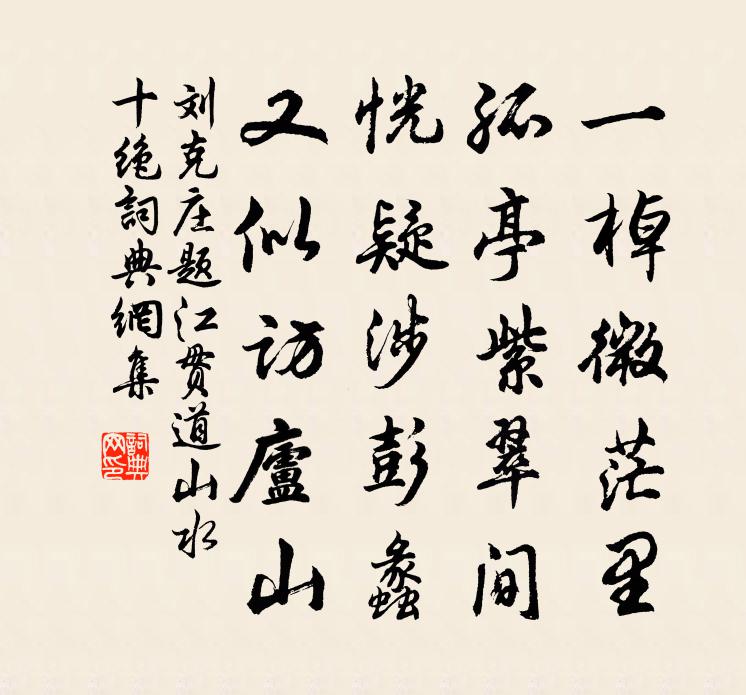 一棹微茫里
孤亭紫翠间
恍疑涉彭蠡
又似访廬山
刘克庄题江贯道山水
十绝詞典網集
詞典网印